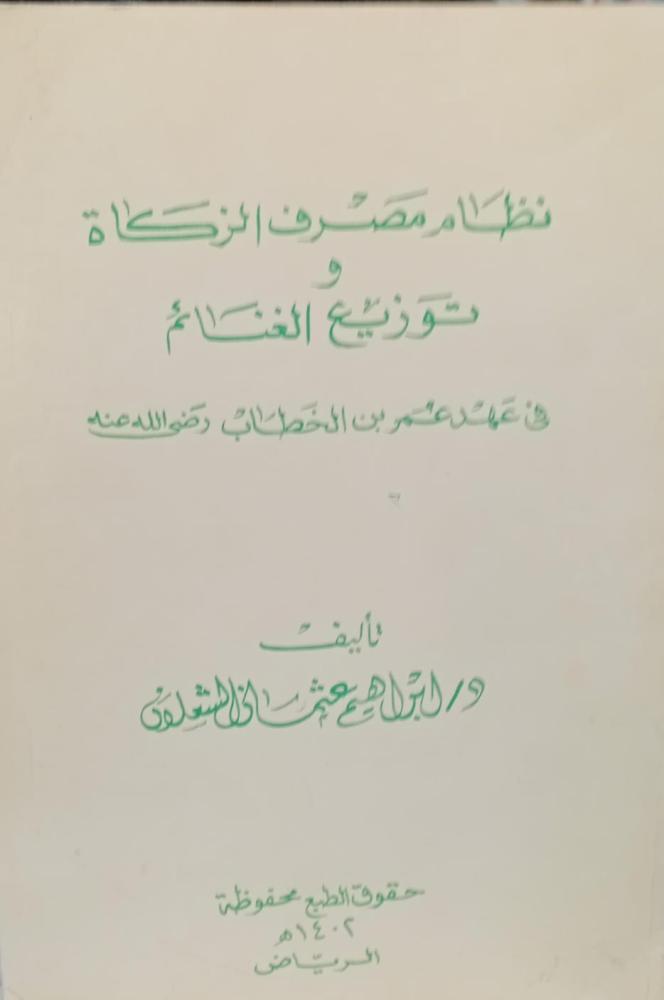 نظام مصرف الزكاة
و
توزيع الغنائم
في عهد عمر بن الخطاب رضي الله عنه
تأليف
د/ ابراهيم عثمان الشعلان
حقوق الطبع محفوظة
١٤٠٢هـ
الرياض